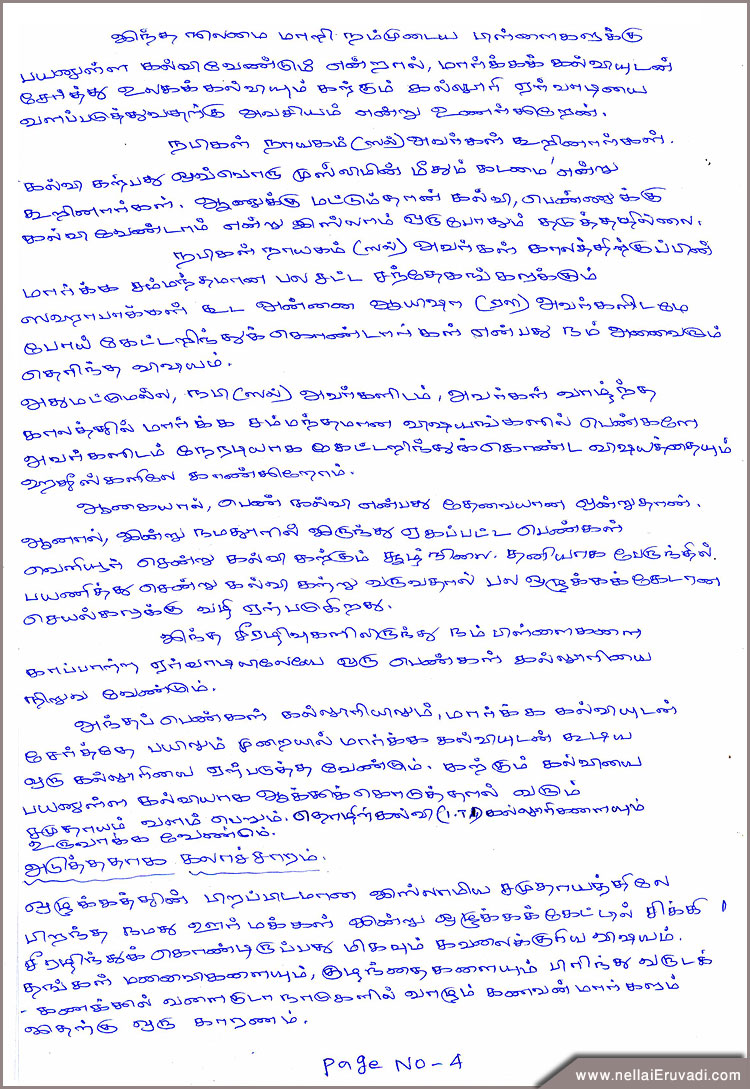 இந்த நிலைமை மாறி நம்முடைய பிள்ளைகளுக்கு
பயனுள்ள கல்வி வேண்டும் என்றால், மார்க்கக் கல்வியுடன்
சேர்த்து உலகக்கல்வியும் கற்கும் கல்லூரி ஏர்வாடியை
வளப்படுத்துவதற்கு அவசியம் என்று உணர்கிறேன்.
நபிகள் நாயகம் (ஸல்) அவர்கள் கூறினார்கள்.
கல்வி கற்பது ஒவ்வொரு முஸ்லிமின் மீதும் கடமை' என்று
கூறினார்கள். ஆணுக்கு மட்டும்தான் கல்வி, பெண்ணுக்கு
கல்வி வேண்டாம் என்று இஸ்லாம் ஒருபோதும் தடுத்ததில்லை.
நபிகள் நாயகம் (ஸல்) அவர்கள் காலத்திற்குப்பின்
மார்க்க சம்மந்தமான பல சட்ட சந்தேகங்களுக்கும்
ஸஹாபாக்கள் கூட அன்னை ஆயிஷா (ரலி) அவர்களிடமே
போய் கேட்டறிந்துக் கொண்டார்கள் என்பது நம் அனைவரும்
தெரிந்த விஷயம்.
அதுமட்டுமல்ல, நபி (ஸல்) அவர்களிடம், அவர்கள் வாழ்ந்த
காலத்தில் மார்க்க சம்மந்தமான விஷயங்களில் பெண்களே
அவர்களிடம் நேரடியாக கேட்டறிந்துக்கொண்ட விஷயத்தையும்
ஹதீஸ்களிலே காண்கிறோம்.
ஆகையால், பெண் கல்வி என்பது தேவையான ஒன்றுதான்.
ஆனால், இன்று நமதூரில் இருந்து ஏகப்பட்ட பெண்கள்
வெளியூர் சென்று கல்வி கற்கும் சூழ்நிலை. தனியாக பேருந்தில்
பயணித்து சென்று கல்வி கற்று வருவதால் பல ஒழுக்கக்கேடான
செயல்களுக்கு வழி ஏற்படுகிறது.
இந்த சீரழிவுகளிலிருந்து நம் பிள்ளைகளை
காப்பாற்ற ஏர்வாடியிலேயே ஒரு பெண்கள் கல்லூரியை
நிறுவ வேண்டும்.
அந்தப் பெண்கள் கல்லூரியிலும், மார்க்க கல்வியுடன்
சேர்த்தே பயிலும் முறையில் மார்க்க கல்வியுடன் கூடிய
ஒரு கல்லூரியை ஏற்படுத்த வேண்டும். கற்கும் கல்வியை
பயனுள்ள கல்வியாக ஆக்கிக் கொடுத்தால் வரும்
சமுதாயம் வளம் பெறும். தொழிற்கல்வி (I.T.I) கல்லூரிகளையும்
உருவாக்க வேண்டும்.
அடுத்ததாக கலாச்சாரம்.
ஒழுக்கத்தின் பிறப்பிடமான இஸ்லாமிய சமுதாயத்திலே
பிறந்த நமது ஊர் மக்கள் இன்று ஒழுக்கக்கேட்டில் சிக்கி
சீரழிந்துக் கொண்டிருப்பது மிகவும் கவலைக்குரிய விஷயம்.
தங்கள் மனைவிகளையும், குழந்தைகளையும் பிரிந்து வருடக்
- கணக்கில் வளைகுடா நாடுகளில் வாழும் கணவன்மார்களும்
இதற்கு ஒரு காரணம்.
Page No - 4
www.nellaiEruvadi.com